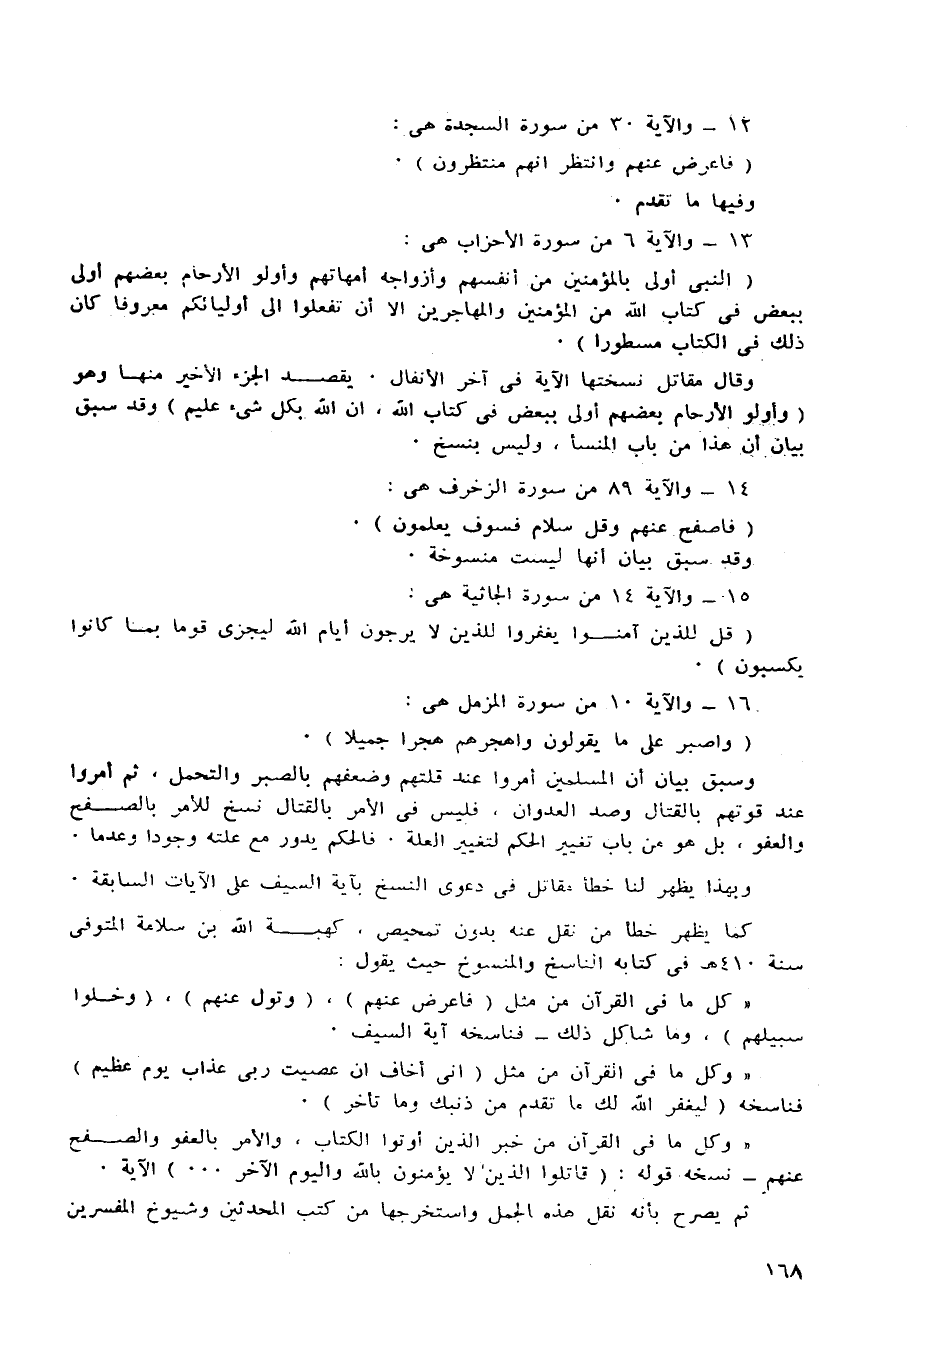 ١٢ ــ والآية ٣٠ من سورة السجدة هى :
( فاعرض عنهم وانتظر انهم منتظرون ) ٠
وفيها ما تقدم ٠
١٣ ــ والآية ٦ من سورة الأحزاب هى :
( النبى أولى بالمؤمنين من أنفسهم وأزواجه أمهاتهم وأولو الأرحام بعضهم أولى
ببعض فى كتاب الله من المؤمنين والمهاجرين الا أن تفعلوا الى أوليائكم معروفا كان
ذلك فى الكتاب مسطورا ) ٠
وقال مقاتل نسختها الآية فى آخر الأنفال ٠ يقصــد الجزء الأخير منهـا وهو
( وأولو الأرحام بعضهم أولى ببعض فى كتاب الله ، ان الله بكل شىء عليم ) وقد سبق
بيان أن هذا من باب المنسأ ، وليس بنسخ ٠
١٤ ــ والآية ٨٩ من سورة الزخرف هى :
( فاصفح عنهم وقل سلام فسوف يعلمون ) ٠
وقد سبق بيان أنها ليست منسوخة ٠
١٥ ــ والآية ١٤ من سورة الجاثية هى :
( قل للذين آمنــوا يغفروا للذين لا يرجون أيام الله ليجزى قوما بمـا كانوا
يكسبون ) ٠
١٦ ــ والآية ١٠ من سورة المزمل هى :
( واصبر على ما يقولون واهجرهم هجرا جميلا ) ٠
وسبق بيان أن المسلمين أمروا عند قلتهم وضعفهم بالصبر والتحمل ، ثم أمروا
عند قوتهم بالقتال وصد العدوان ، فليس فى الأمر بالقتال نسخ للأمر بالصــفح
والعفو ، بل هو من باب تغيير الحكم لتغيير العلة ٠ فالحكم يدور مع علته وجودا وعدما ٠
وبهذا يظهر لنا خطأ مقاتل فى دعوى النسخ بآية السيف على الآيات السابقة ٠
كما يظهر خطأ من نقل عنه بدون تمحيص ، كهبــة الله بن سلامة المتوفى
سنة ٤١٠هـ فى كتابه الناسخ والمنسوخ حيث يقول :
« كل ما فى القرآن من مثل ( فاعرض عنهم ) ، ( وتول عنهم ) ، ( وخـلوا
سبيلهم ) ، وما شاكل ذلك ــ فناسخه آية السيف ٠
« وكل ما فى القرآن من مثل ( انى أخاف ان عصيت ربى عذاب يوم عظيم )
فناسخه ( ليغفر الله لك ما تقدم من ذنبك وما تأخر ) ٠
« وكل ما فى القرآن من خبر الذين أوتوا الكتاب ، والأمر بالعفو والصــفح
عنهم ــ نسخه قوله : ( قاتلوا الذين لا يؤمنون بالله واليوم الآخر ٠٠٠ ) الآية ٠
ثم يصرح بأنه نقل هذه الجمل واستخرجها من كتب المحدثين وشيوخ المفسرين
١٦٨